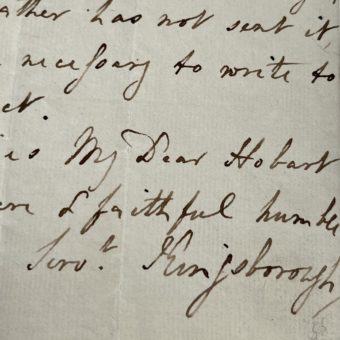 ather has not sent it
necessary to write to
ct.
is My Dear Hobart
ere & faithful humble
Serv.t Kingsborough